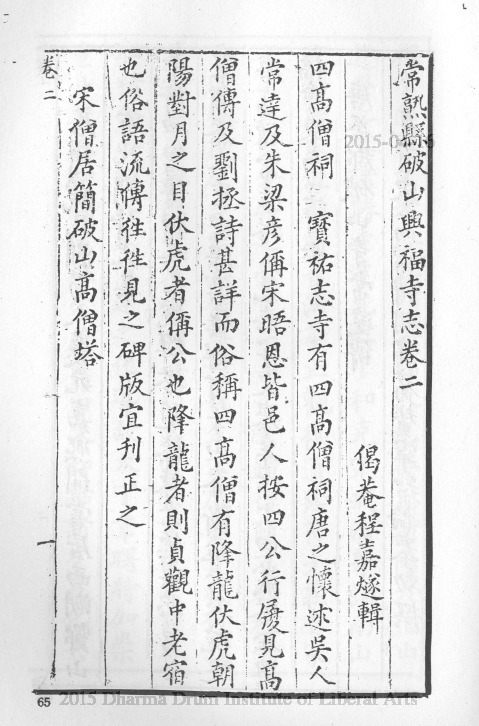 常熟縣破山興福寺志卷二
偈菴程嘉燧輯
四高僧祠　寶祐志寺有四高僧祠唐之懷述吳人
常達及朱梁彥偁宋晤恩皆邑人按四公行履見高
僧傳及劉拯詩甚詳而俗稱四高僧有降龍伏虎朝
陽對月之目伏虎者偁公也降龍者則貞觀中老宿
也俗語流傳往往見之碑版宜刋正之
宋僧居簡破山高僧塔
卷二
65
2015 Dharma Drum Institute of Liberal Arts